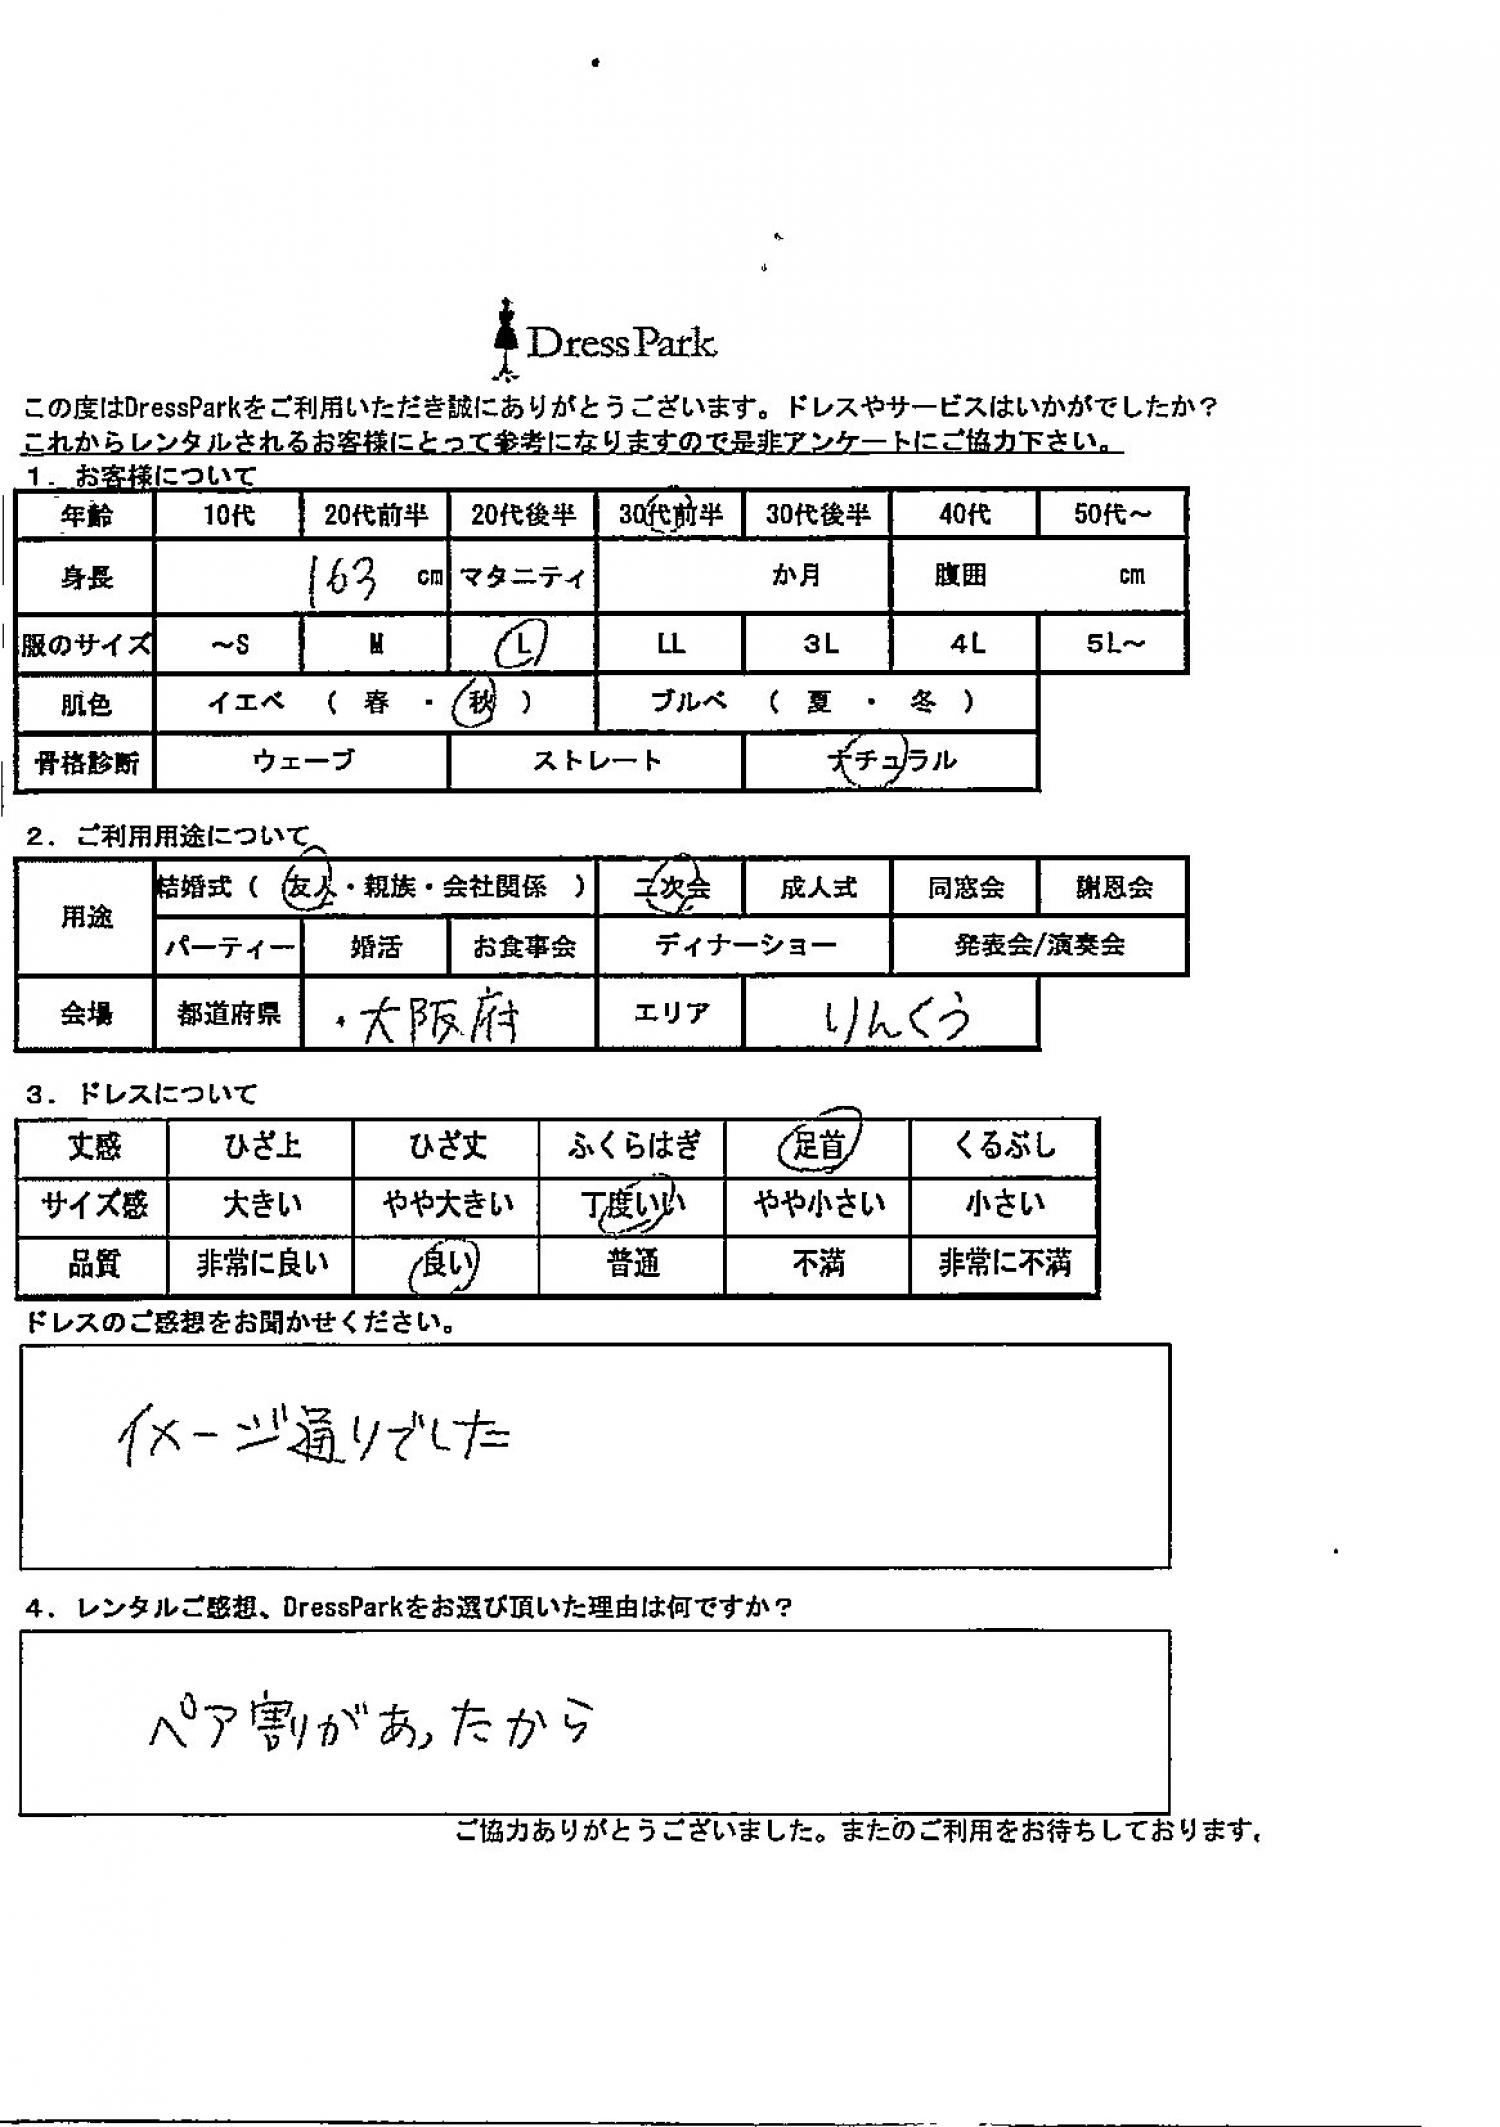 DressPark
この度はDressParkをご利用いただき誠にありがとうございます。ドレスやサービスはいかがでしたか？
これからレンタルされるお客様にとって参考になりますので是非アンケートにご協力下さい。
１．お客様について
年齢 10代 20代前半 20代後半 30代前半 30代後半 40代 50代～
身長 163 cm マタニティ か月 腹囲 cm
服のサイズ ～S M L LL 3L 4L 5L～
肌色 イエベ （ 春 ・ 秋 ） ブルベ （ 夏 ・ 冬 ）
骨格診断 ウェーブ ストレート ナチュラル
２．ご利用用途について
用途 結婚式（ 友人・親族・会社関係 ） 二次会 成人式 同窓会 謝恩会
パーティー 婚活 お食事会 ディナーショー 発表会/演奏会
会場 都道府県 大阪府 エリア りんくう
３．ドレスについて
丈感 ひざ上 ひざ丈 ふくらはぎ 足首 くるぶし
サイズ感 大きい やや大きい 丁度いい やや小さい 小さい
品質 非常に良い 良い 普通 不満 非常に不満
ドレスのご感想をお聞かせください。
イメージ通りでした
４．レンタルご感想、DressParkをお選び頂いた理由は何ですか？
ペア割があったから
ご協力ありがとうございました。またのご利用をお待ちしております。